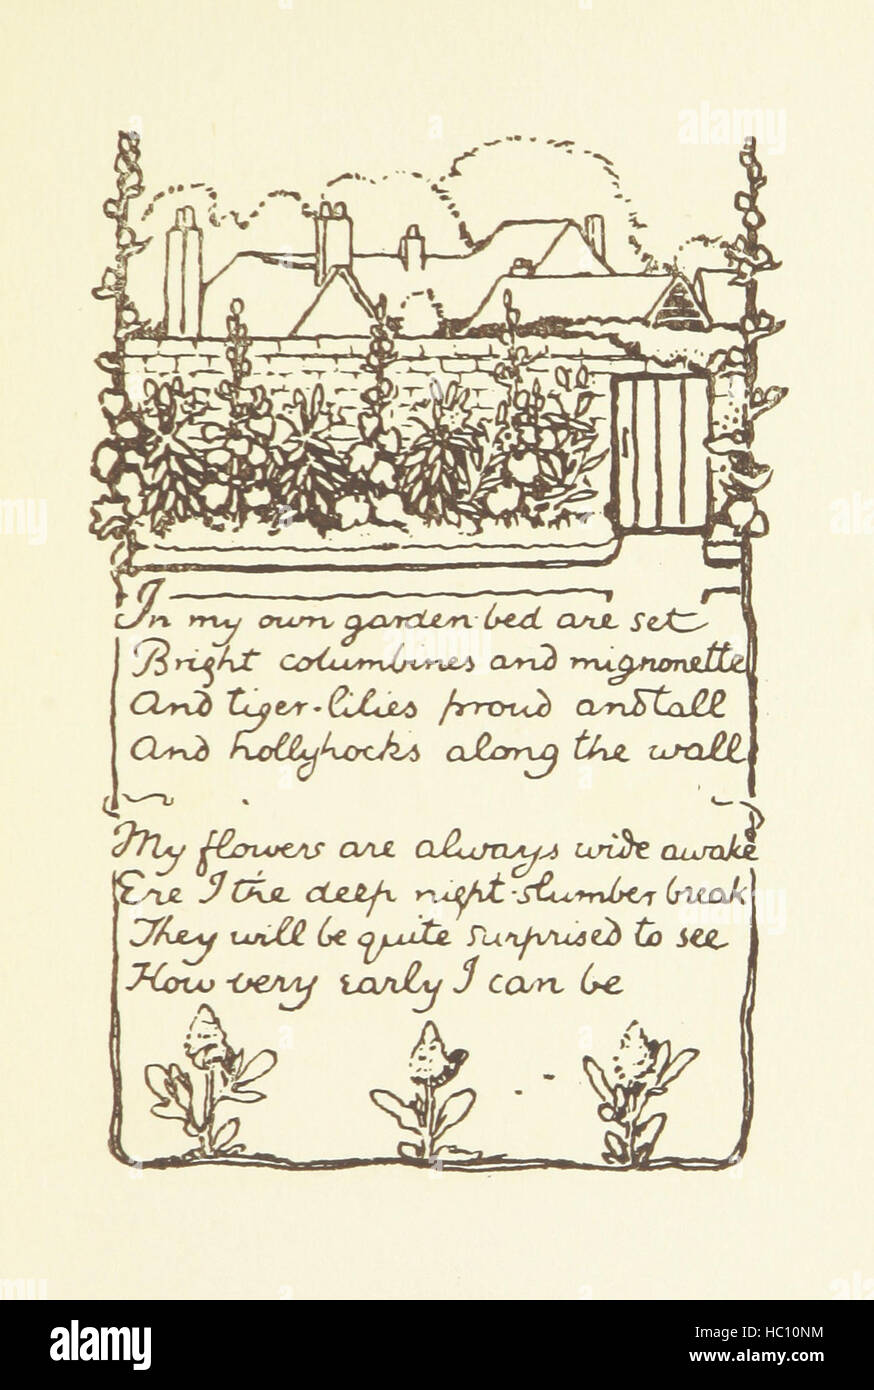 In my own garden-bed are set
Bright columbines and mignonette
And tiger-lilies proud and tall
And hollyhocks along the wall
My flowers are always wide awake
Ere I the deep night-slumber break
They will be quite surprised to see
How very early I can be
alamy
Image ID: HC10NM
www.alamy.com